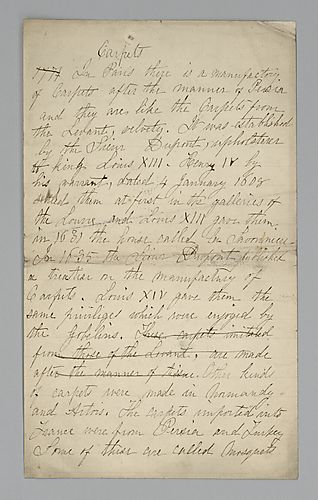 Carpets
1771 In Paris there is a manufactory
of Carpets after the manner of Persia
and they are like the Carpets from
the Levant, velvety. It was established
by the Sieur Dupont, upholsterer
of king Louis XIII. Henry IV by
his warrant, dated 4 January 1608
them at first in the galleries of
the Louvre and Louis XIII gave them
in 1631 the house called la Savonnerie
In 1635 the Sieur Dupont published
a treatise on the manufactury of
Carpets. Louis XIV gave them the
same privileges which were enjoyed by
the gobelins. These carpets imitated
from those of the Levant. are made
after the manner of tissue. Other kinds
of carpets were made in Normandy
and Artois. The carpets imported into
France were from Persia and Turkey
Some of these are called Mosquets